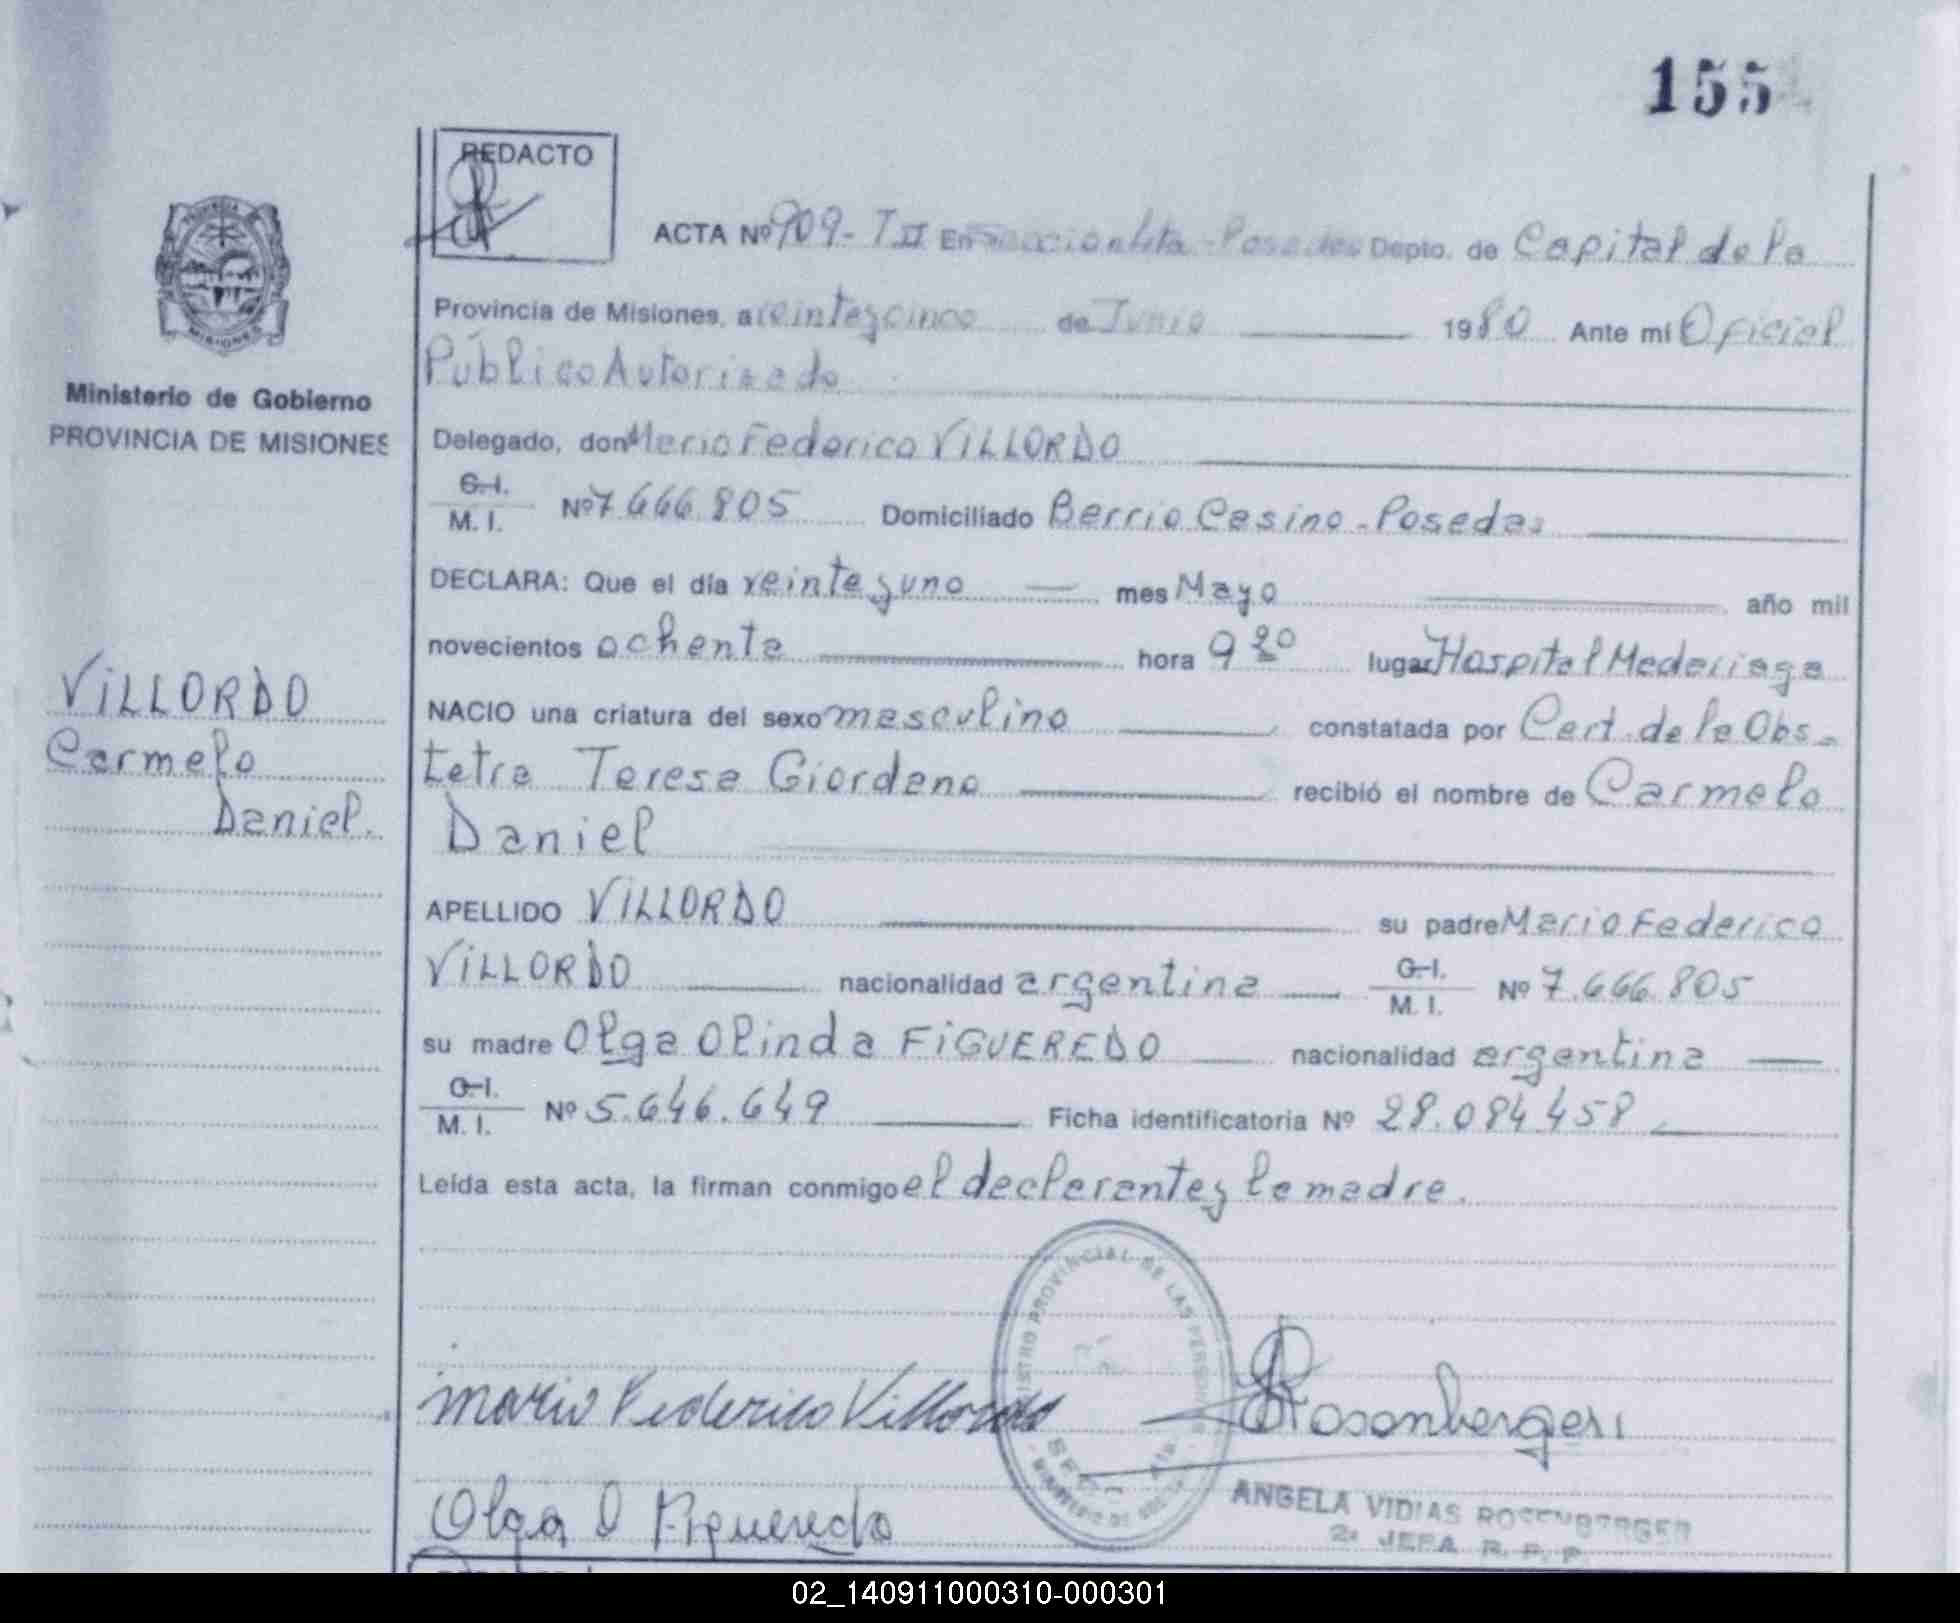 155
REDACTO
PROVINCIA DE
MISIONES
Ministerio de Gobierno
PROVINCIA DE MISIONES
VILLORDO
Carmelo
Daniel.
ACTA Nº 909- T II En Seccional 1ta - Posadas Depto. de Capital de la
Provincia de Misiones, a veinteycinco de Junio 1980 Ante mí Oficial
Público Autorizado
Delegado, don Mario Federico VILLORDO
C.I. M. I. Nº 7.666.805 Domiciliado Barrio Casino - Posadas
DECLARA: Que el día veinteyuno mes Mayo año mil
novecientos ochenta hora 9 20 lugar Hospital Madariaga
NACIO una criatura del sexo masculino constatada por Cert. de la Obs-
tetra Teresa Giordano recibió el nombre de Carmelo
Daniel
APELLIDO VILLORDO su padre Mario Federico
VILLORDO nacionalidad argentina C.I. M. I. Nº 7.666.805
su madre Olga Olinda FIGUEREDO nacionalidad argentina
C.I. M. I. Nº 5.646.649 Ficha identificatoria Nº 28.084.458
Leída esta acta, la firman conmigo el declarante y la madre.
REGISTRO PROVINCIAL DE LAS PERSONAS
Mario Federico Villordo
Rosenberger
Olga O Figueredo
ANGELA VIDIAS ROSENBERGER
2ª JEFA R. P. P.
02_140911000310-000301